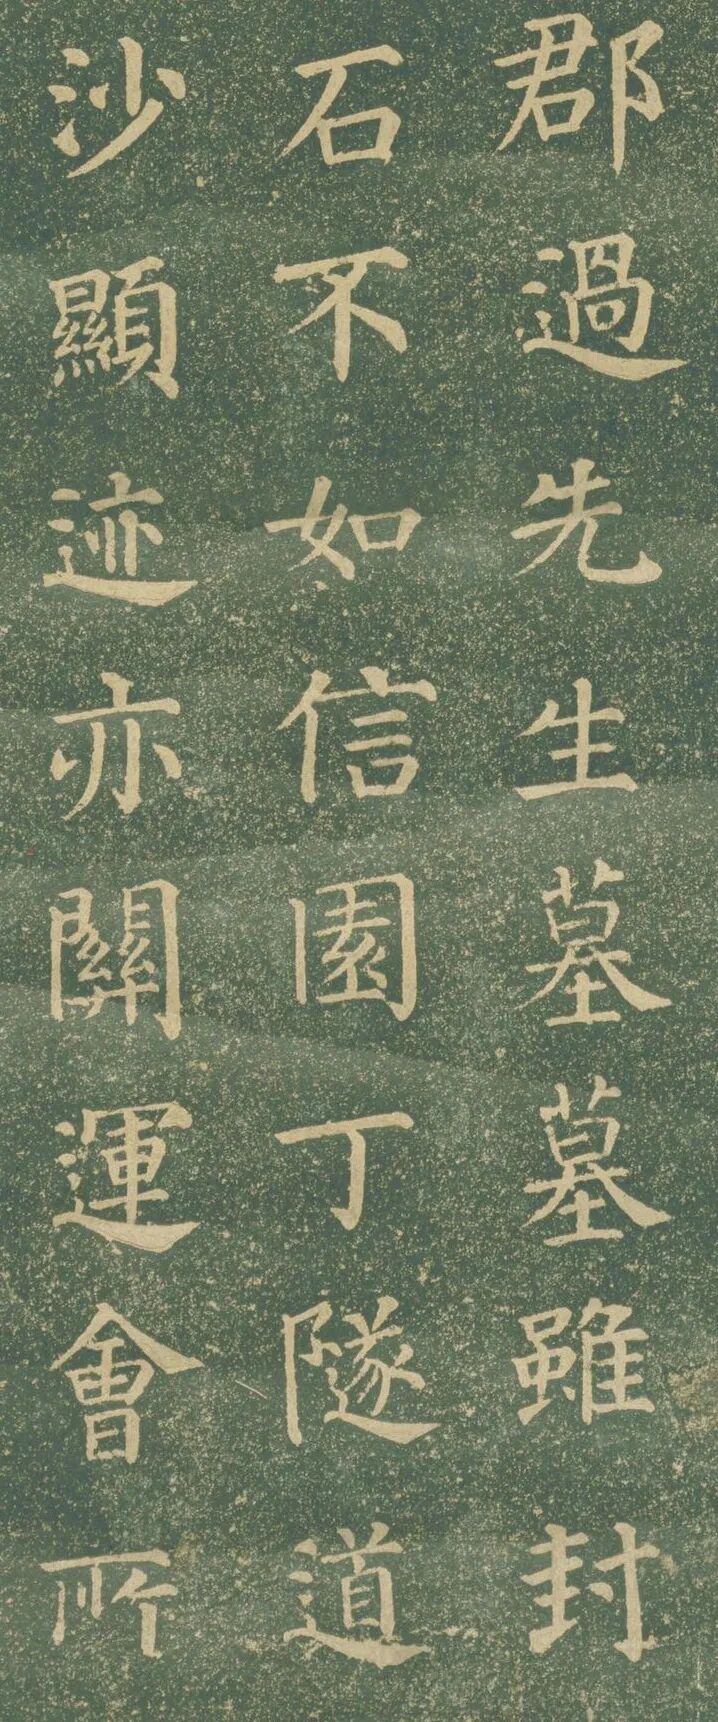 郡過先生墓墓雖封
石不如信園丁隧道
沙顯迹亦關運會所